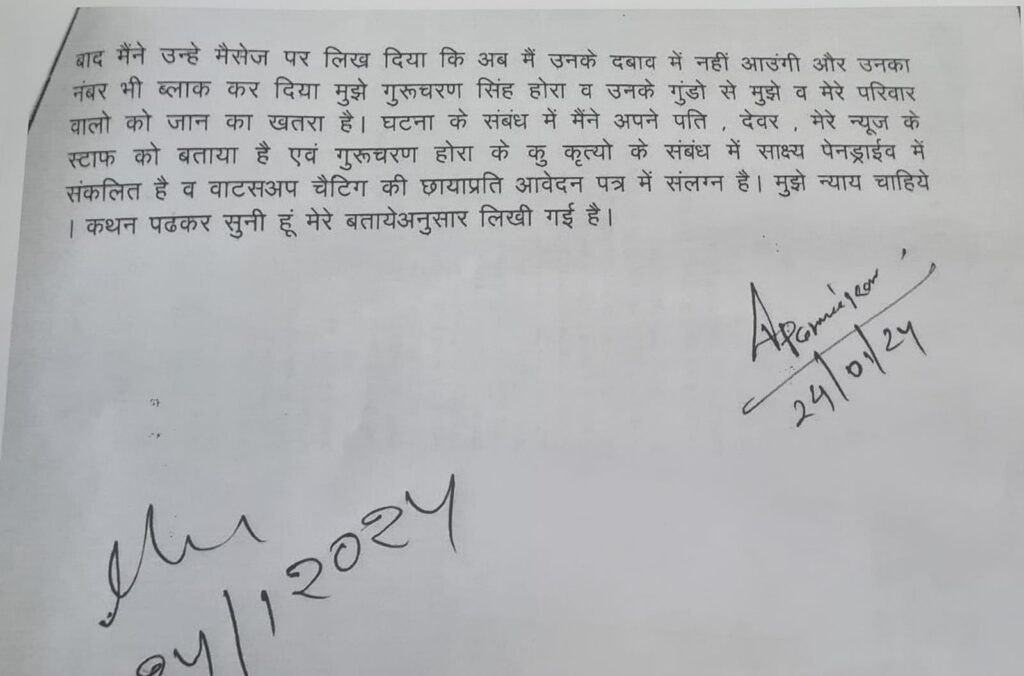 बाद मैंने उन्हे मैसेज पर लिख दिया कि अब मैं उनके दबाव में नहीं आउंगी और उनका
नंबर भी ब्लाक कर दिया मुझे गुरूचरण सिंह होरा व उनके गुंडो से मुझे व मेरे परिवार
वालो को जान का खतरा है। घटना के संबंध में मैंने अपने पति , देवर , मेरे न्यूज के
स्टाफ को बताया है एवं गुरूचरण होरा के कु कृत्यो के संबंध में साक्ष्य पेनड्राईव में
संकलित है व वाटसअप चैटिंग की छायाप्रति आवेदन पत्र में संलग्न है। मुझे न्याय चाहिये
। कथन पढकर सुनी हूं मेरे बतायेअनुसार लिखी गई है।
24/01/24
24/1/2024